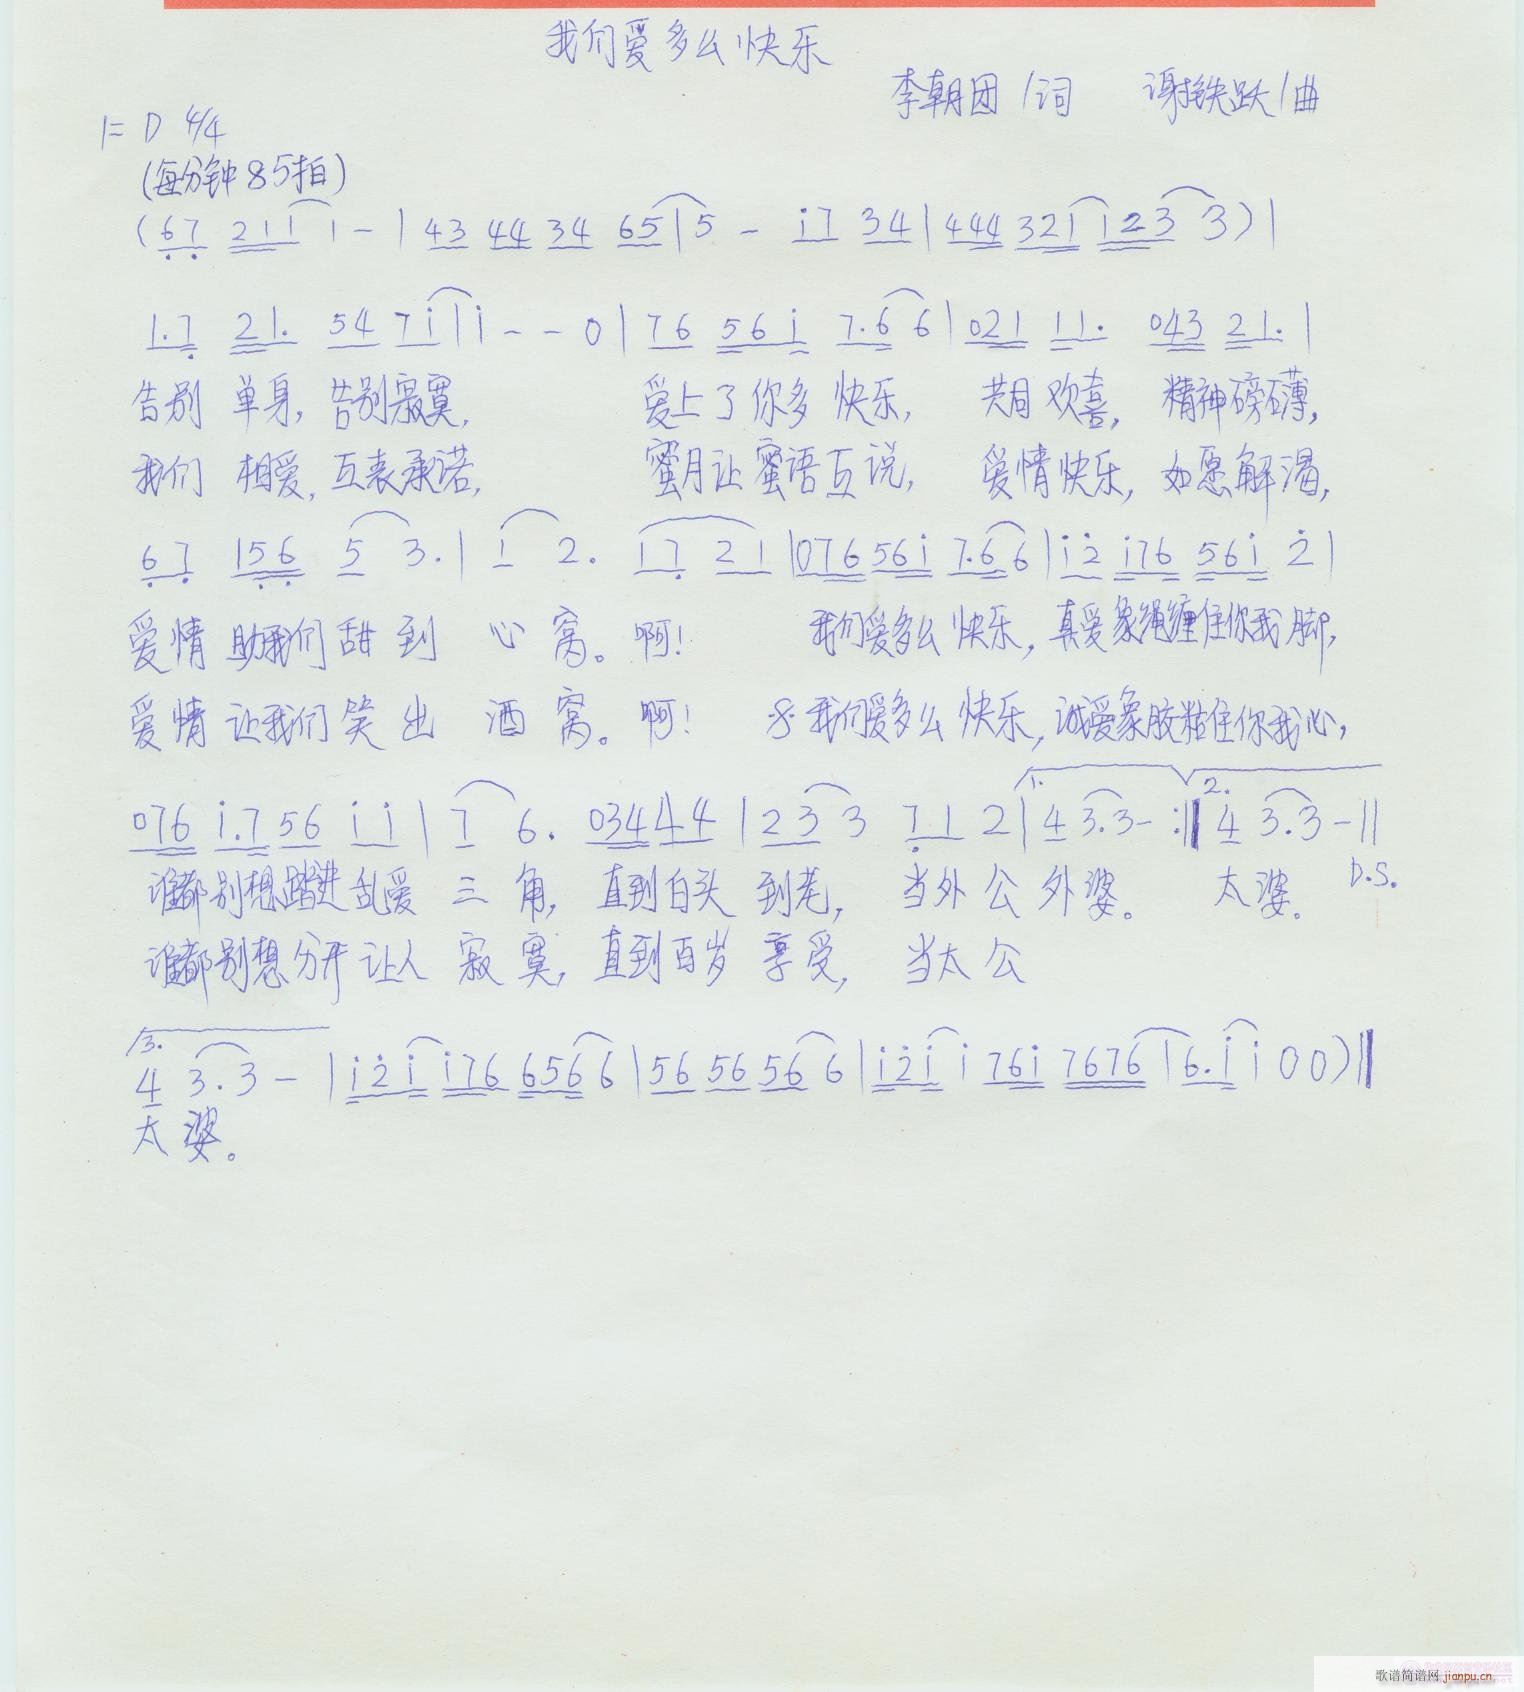 我们爱多么快乐
李朝团/词 谢铁跃/曲
1=D 4/4
(每分钟85拍)
(67 211 1-|43 44 34 65|5 - i7 34|444 321 123 3)|
1.7 21. 54 7i|i--0|76 56i 7.6 6|021 11. 043 21.|
告别 单身,告别寂寞, 爱上了你多快乐, 共目欢喜,精神磅礴,
我们 相爱,互表承诺, 蜜月让蜜语互说, 爱情快乐,如愿解渴,
67 156 5 3.|1 2. 17 21|076 56i 7.6 6|i2 i76 56i 2|
爱情 助我们 甜到 心窝。啊! 我们爱多么快乐,真爱象绳缠住你我脚,
爱情 让我们 笑出 酒窝。啊! 我们爱多么快乐,诚爱象胶粘住你我心,
076 i.7 56 i i|7 6. 034 44|23 3 71 2|1. 4 3.3-:‖2. 4 3.3-‖
谁都别想踏进乱爱 三角,直到白头 到老,当外公外婆。 太婆。 D.S.
谁都别想分开让人 寂寞,直到百岁 享受,当太公
3. 4 3.3 -|i2i i76 656 6|56 56 56 6|i2i i 76i 7676|6.i i 0 0)‖
太婆。
歌谱简谱网 jianpu.cn